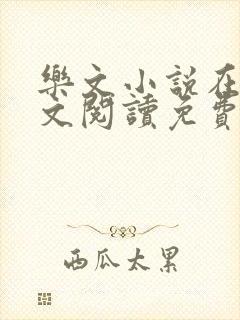 樂文小說在
文閱讀免費
西瓜太累